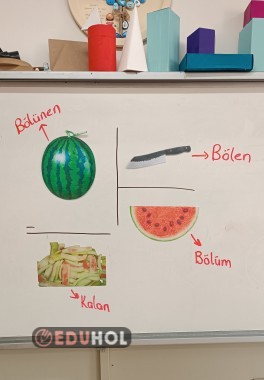 Bölünen
Bölen
Bölüm
Kalan
EDUHOL